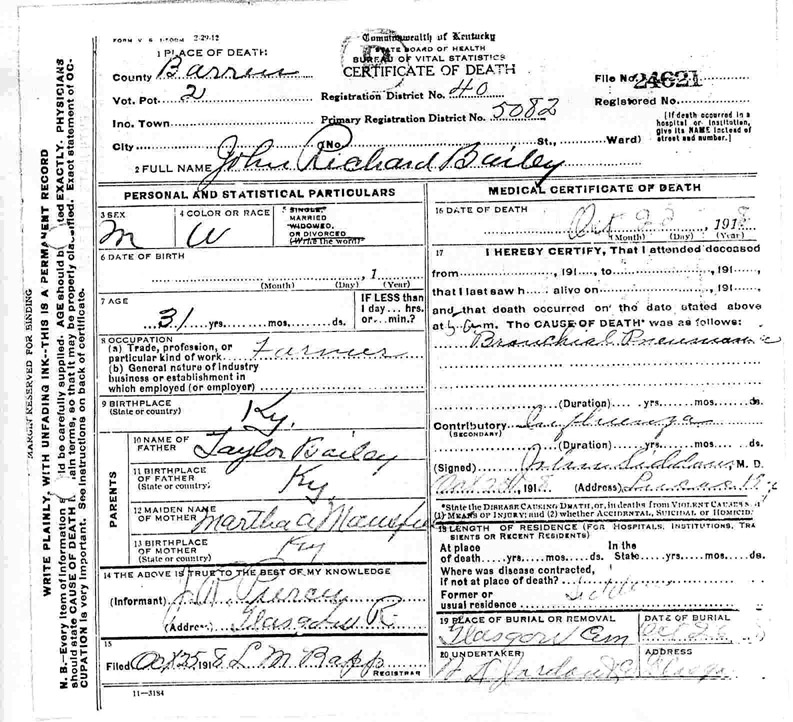 FORM V. S. 2-29-12
Commonwealth of Kentucky
STATE BOARD OF HEALTH
BUREAU OF VITAL STATISTICS
CERTIFICATE OF DEATH
1 PLACE OF DEATH
County Barren
Vot. Pct. 2
Inc. Town
City
Registration District No. 40
Primary Registration District No. 5082
(No. St., Ward)
File No. 24621
Registered No.
[If death occurred in a
hospital or institution,
give its NAME instead of
street and number.]
2 FULL NAME John Richard Bailey
PERSONAL AND STATISTICAL PARTICULARS
3 SEX
M
4 COLOR OR RACE
W
5 SINGLE,
MARRIED
WIDOWED,
OR DIVORCED
(Write the word)
6 DATE OF BIRTH
, 1
(Month) (Day) (Year)
7 AGE
31 yrs. mos. ds.
IF LESS than
1 day... hrs.
or... min.?
8 OCCUPATION
(a) Trade, profession, or
particular kind of work Farmer
(b) General nature of industry
business or establishment in
which employed (or employer)
9 BIRTHPLACE
(State or country) Ky.
PARENTS
10 NAME OF
FATHER Taylor Bailey
11 BIRTHPLACE
OF FATHER
(State or country) Ky.
12 MAIDEN NAME
OF MOTHER Martha A
13 BIRTHPLACE
OF MOTHER
(State or country) Ky
14 THE ABOVE IS TRUE TO THE BEST OF MY KNOWLEDGE
(Informant)
(Address) Glasgow R.
15
Filed Oct 25 1918 L M Rapp
REGISTRAR
11-3184
MEDICAL CERTIFICATE OF DEATH
16 DATE OF DEATH
Oct 22 1918
(Month) (Day) (Year)
17 I HEREBY CERTIFY, That I attended deceased
from , 191 , to , 191 ,
that I last saw h alive on , 191 ,
and that death occurred on the date stated above
at m. The CAUSE OF DEATH* was as follows:
Bronchial Pneumonia
(Duration) yrs. mos. ds.
Contributory Influenza
(SECONDARY)
(Duration) yrs. mos. ds.
(Signed) M. D.
Oct 1918 (Address)
*State the DISEASE CAUSING DEATH, or, in deaths from VIOLENT CAUSES
(1) MEANS OF INJURY; and (2) whether ACCIDENTAL, SUICIDAL or HOMICID
18 LENGTH OF RESIDENCE (FOR HOSPITALS, INSTITUTIONS, TRA
SIENTS OR RECENT RESIDENTS)
At place In the
of death yrs. mos. ds. State yrs. mos. ds.
Where was disease contracted,
if not at place of death?
Former or
usual residence
19 PLACE OF BURIAL OR REMOVAL
Glasgow Cem
DATE OF BURIAL
Oct 2
20 UNDERTAKER
ADDRESS
MARGIN RESERVED FOR BINDING
WRITE PLAINLY, WITH UNFADING INK--THIS IS A PERMANENT RECORD
N. B.--Every item of information should be carefully supplied. AGE should be stated EXACTLY. PHYSICIANS
should state CAUSE OF DEATH in plain terms, so that it may be properly classified. Exact statement of OC-
CUPATION is very important. See instructions on back of certificate.